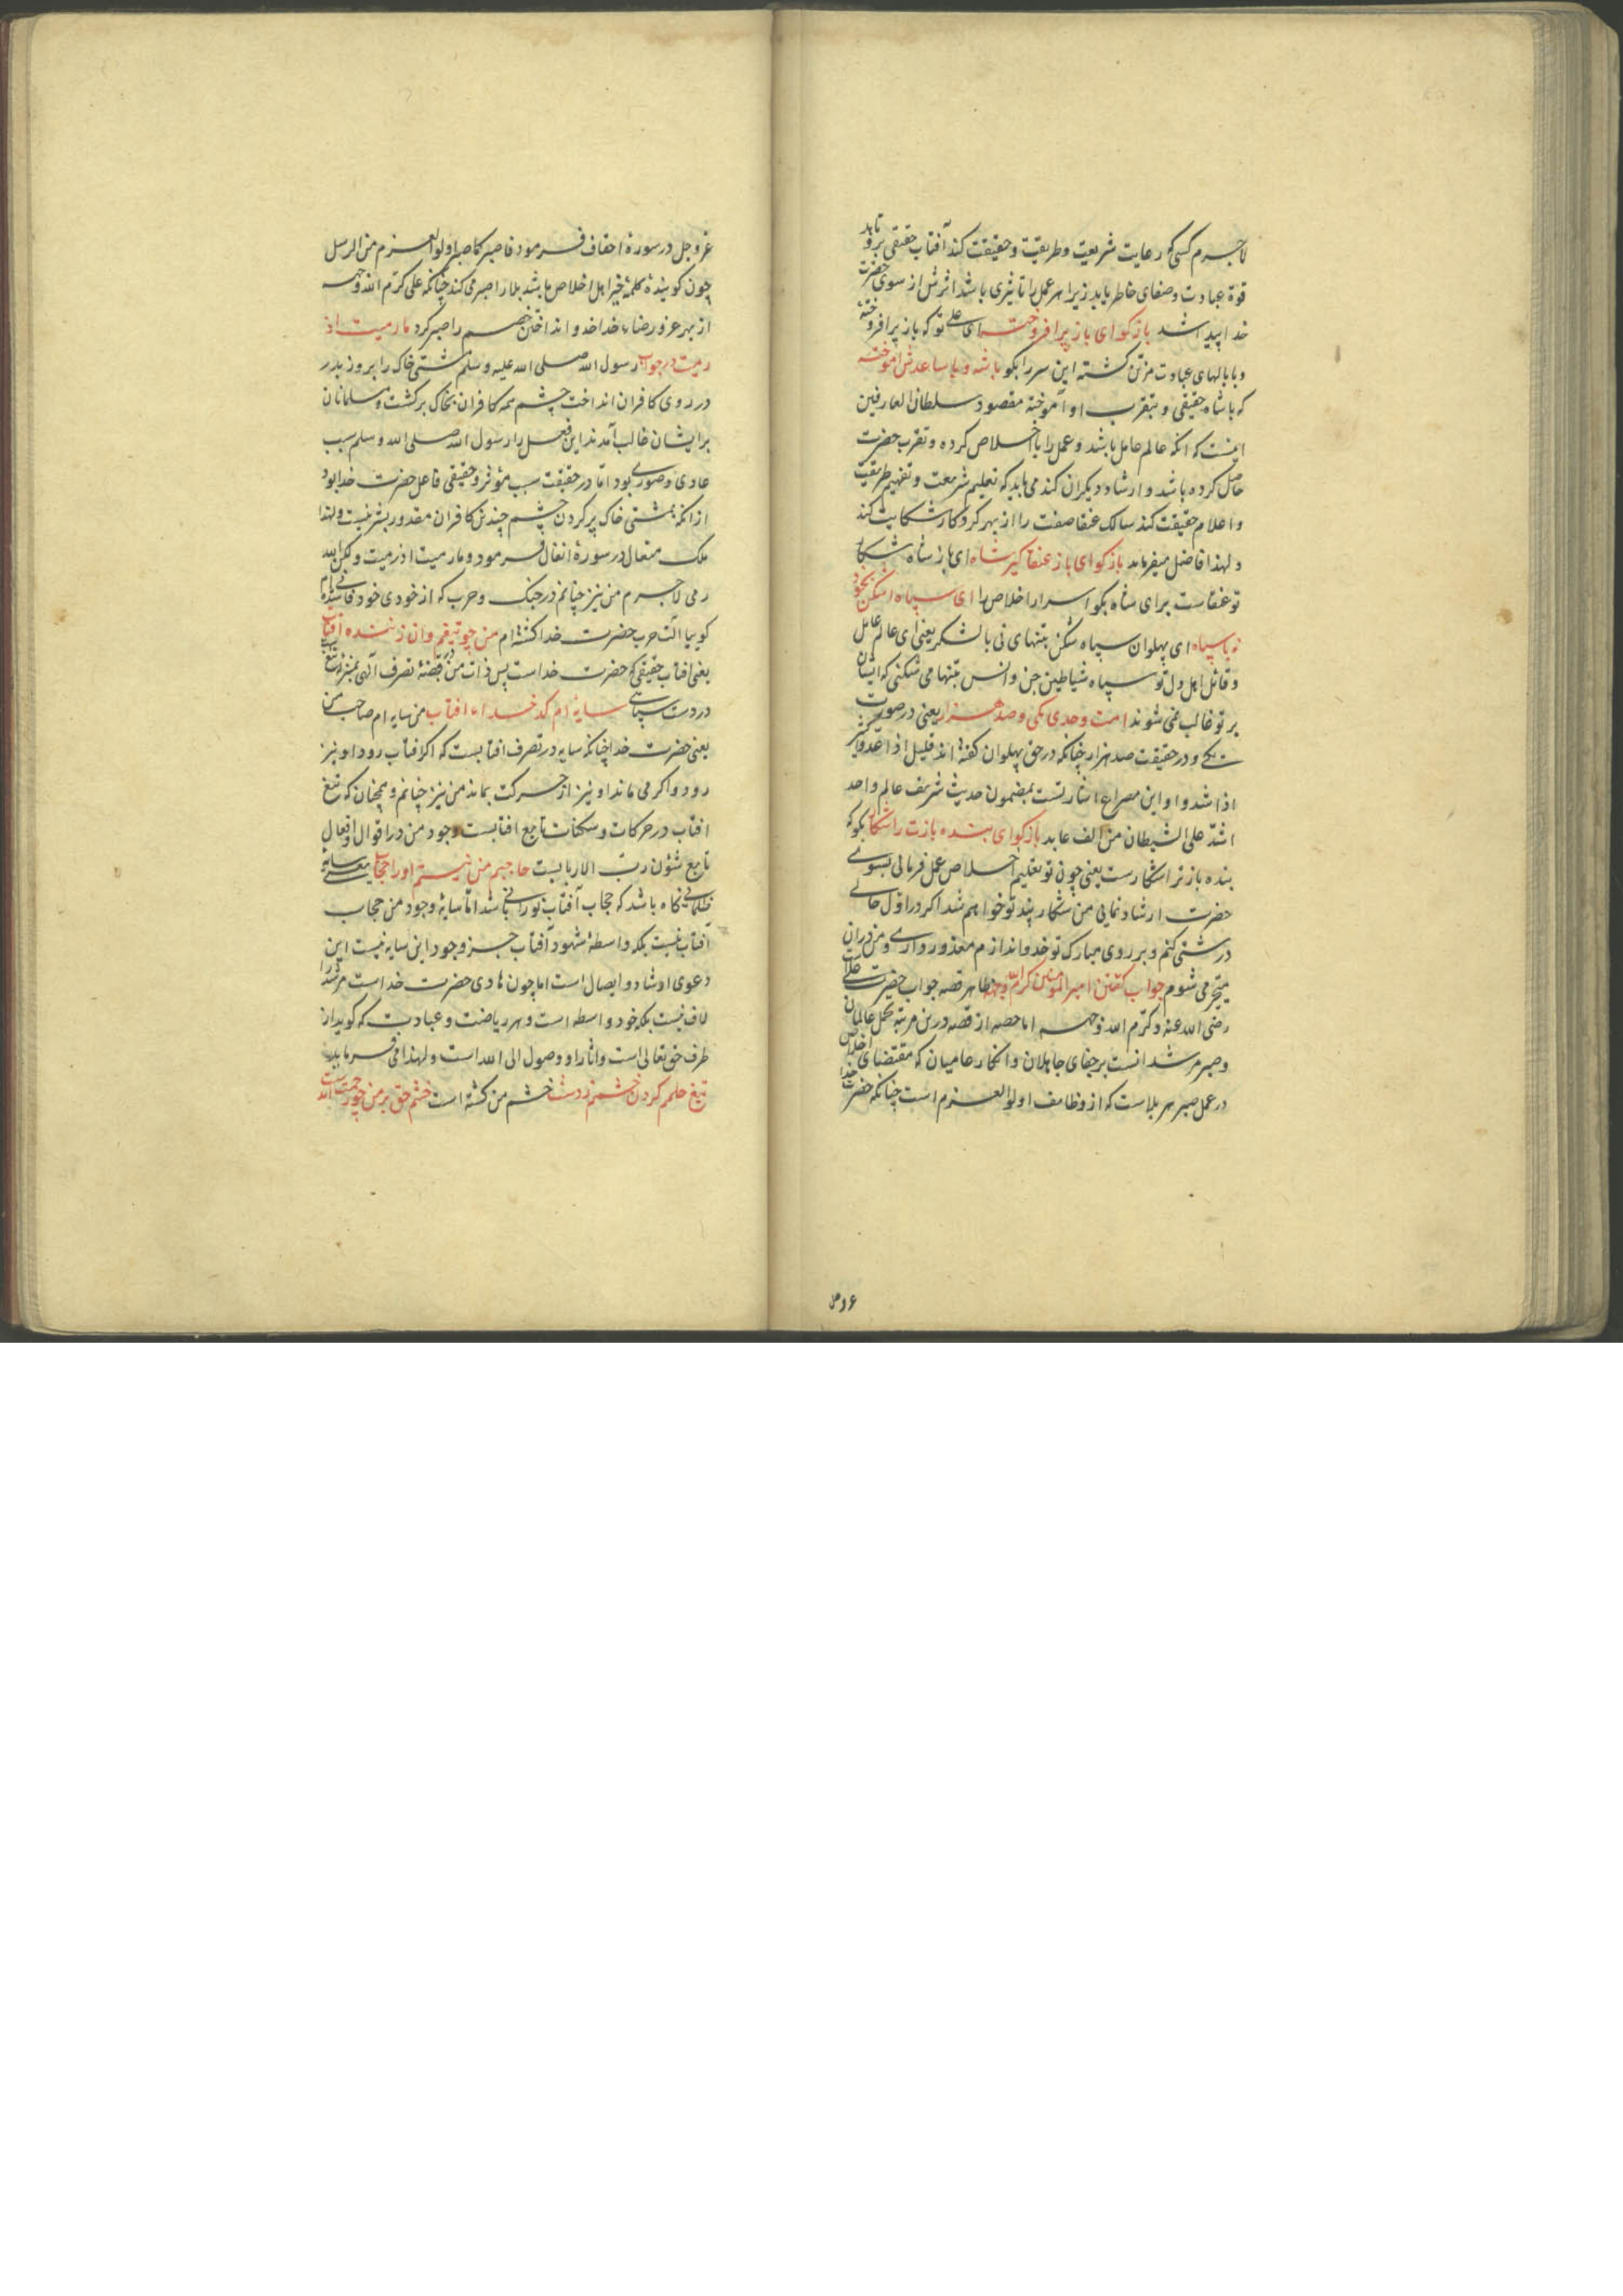 لاجرم کسی کو رعایت شریعت و طریقت و حقیقت کند آفتاب حقیقی برو تابد
قوة عبادت و صفای خاطر یابد زیرا هر عمل را تاثیری باشد اثرش از سوی حضرت
خدا پیدا شد باز کو ای باز پر افروخته ای علی تو که باز پر افروخته
و با بالهای عبادت مزین کشته این سر را بکو با شه و با ساعدش آموخته
که با شاه حقیقی و بتقرب او آموخته مقصود سلطان العارفین
اینست که آنکه عالم عامل باشد و عمل را با اخلاص کرده و تقرب حضرت
حاصل کرده باشد و ارشاد دیکران کند می باید که تعلیم شریعت و تفهیم طریقت
و اعلام حقیقت کند سالک عنقا صفت را از بهر کردکار شکایت کند
و لهذا فاضل میفرماید باز کو ای باز عنقا کیر شاه ای باز شاه شکار
تو عنقاست برای شاه بکو اسرار اخلاص را ای سپاه اشکن بخود
نه با سپاه ای پهلوان سپاه شکن بتنهای نی با لشکر یعنی ای عالم عامل
و قاتل اهل دل تو سپاه شیاطین جن و انس بتنها می شکنی که ایشان
بر تو غالب نمی شوند امت وحدی یکی و صد هزار یعنی در صورت
یکی و در حقیقت صد هزار چنانکه در حق پهلوان کفته اند قلیل اذا عدوا کثیر
اذا شدوا و این مصراع اشارتست بمضمون حدیث شریف عالم واحد
اشد علی الشیطان من الف عابد باز کو ای بنده بازت را شکار بکو که
بنده باز ترا شکارست یعنی چون تو تعلیم اخلاص عمل فرمائی بسوی
حضرت ارشاد نمایی من شکار پند تو خواهم شد اکر در اول حالی
درشتی کنم و بر روی مبارک تو خدو اندازم معذور داری و من در آن
متحیر می شوم جواب کفتن امیر المؤمنین کرم الله وجهه ظاهر قصه جواب حضرت علی
رضی الله عنه و کرم الله وجهه اما حصه از قصه درین مرتبه تحمل عالمان
و صبر مرشد آنست بر جفای جاهلان و انکار عامیان که مقتضای اخلاص
در عمل صبر بر بلاست که از وظایف اولو العزم است چنانکه حضرت خدا
عز و جل در سورة احقاف فرمود فاصبر کما صبر اولوا العزم من الرسل
چون کوینده کلمة خیر اهل اخلاص باشد بلا را صبر می کند چنانکه علی کرم الله وجهه
از بهر عز و رضاء خدا خدو انداختن خصم را صبر کرد ما رمیت اذ
رمیت در جواب رسول الله صلی الله علیه و سلم مشتی خاک را بروز بدر
در روی کافران انداخت چشم همه کافران بخاک برکشت و مسلمانان
بر ایشان غالب آمدند این فعل را رسول الله صلی الله و سلم سبب
عادی و صوری بود اما در حقیقت سبب مؤثر و حقیقی فاعل حضرت خدا بود
از انکه بمشتی خاک پر کردن چشم چندین کافران مقدور بشر نیست و لهذا
ملک متعال در سورة انفال فرمود و ما رمیت اذ رمیت ولکن الله
رمی لاجرم من نیز چنانم در جنک و حرب که از خودی خود فانی شده ام
کوییا آلت حرب حضرت خدا کشته ام من چو تیغم وان زننده آفتاب
یعنی آفتاب حقیقی که حضرت خداست پس ذات من در قبضة تصرف الهی بمنزلة تیغ
در دست سپاهی سایه ام کدخدا ام آفتاب من سایه ام صاحب من
یعنی حضرت خدا چنانکه سایه در تصرف افتابست که اکر افتاب رود او نیز
رود و اکر می ماند او نیز از حرکت بماند من نیز چنانم و همچنان که تیغ
افتاب در حرکات و سکنات تابع افتابست وجود من در اقوال و افعال
تابع شئون رب الاربابست حاجبم من نیستم او را حجاب یعنی سایة
ظلمانی کاه باشد که حجاب آفتاب نورانی باشد اما سایة وجود من حجاب
آفتاب نیست بلکه واسطة شهود آفتاب جز وجود این سایه نیست این
دعوی ارشاد و ایصال است اما چون هادی حضرت خداست مرشد را
لاف نیست بلکه خود واسطه است و هر ریاضت و عبادت که کوید از
طرف حق تعالی است و آثار او وصول الی الله است و لهذا می فرماید
تیغ حلمم کردن خشمم زدست خشم من کشته است خشم حق بر من چو رحمت آمدست